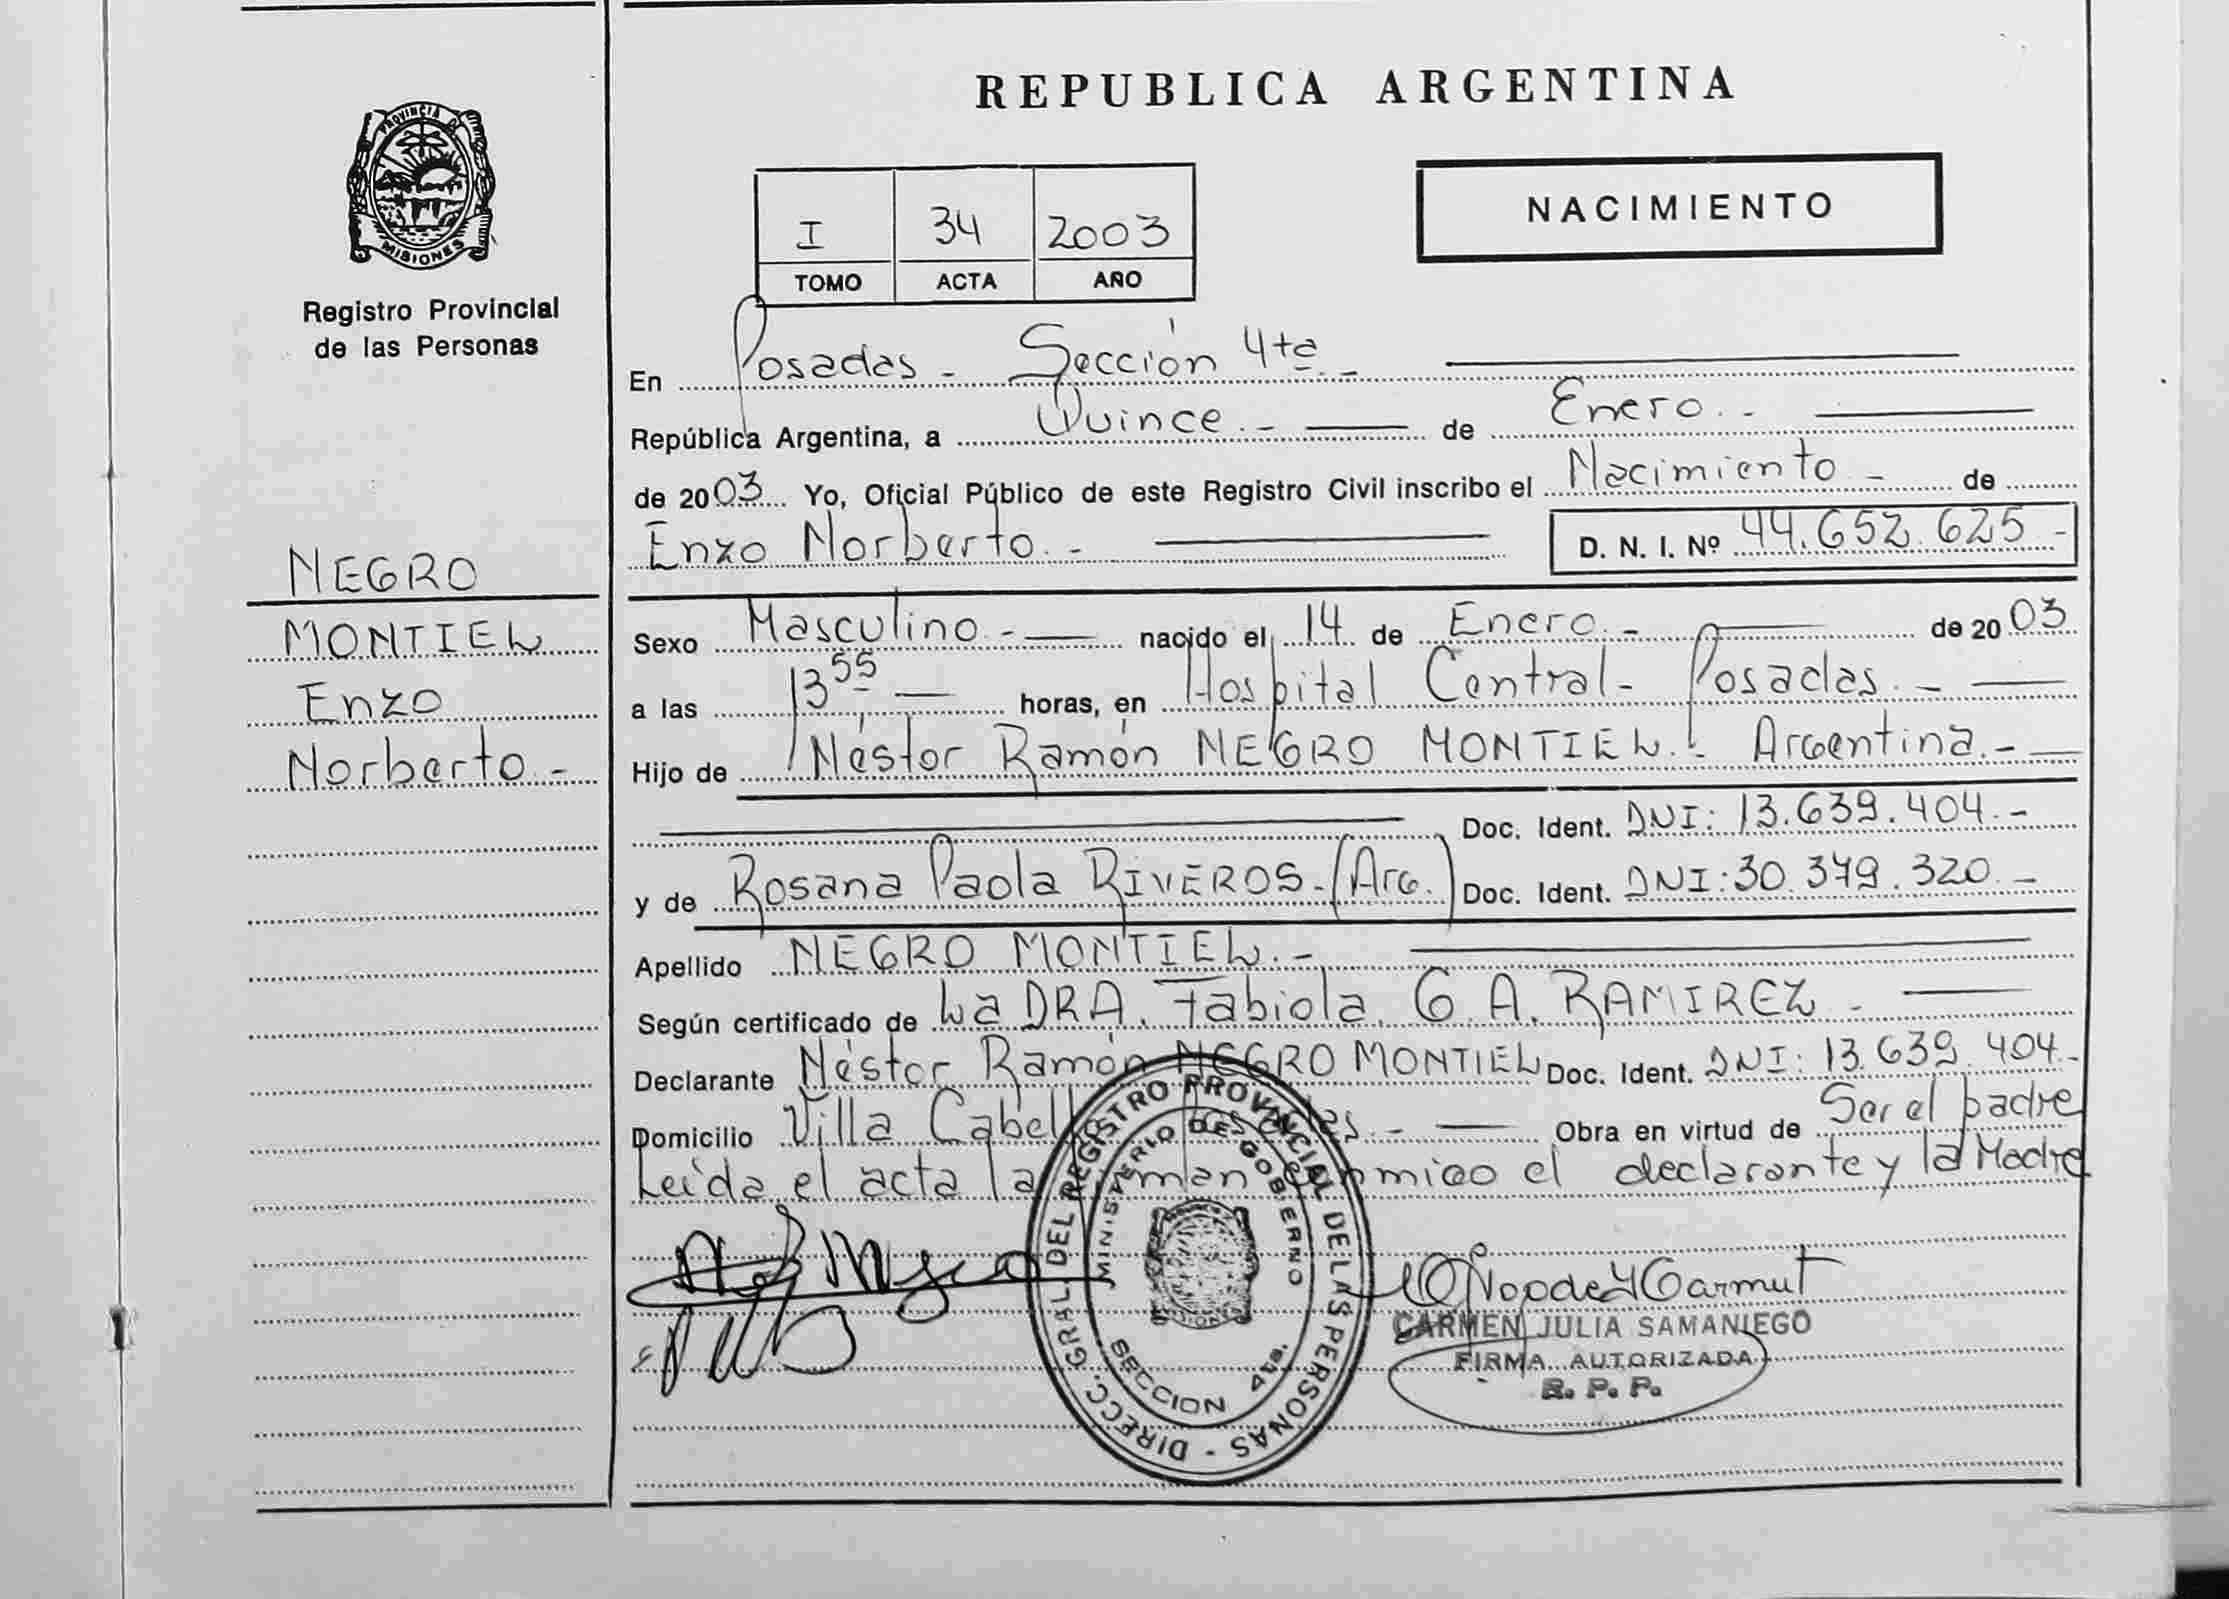 REPUBLICA ARGENTINA
PROVINCIA DE
MISIONES
Registro Provincial
de las Personas
NEGRO
MONTIEL
Enzo
Norberto.-
I 34 2003
TOMO ACTA AÑO
NACIMIENTO
En Posadas - Sección 4ta.-
República Argentina, a Quince.- de Enero.-
de 2003 Yo, Oficial Público de este Registro Civil inscribo el Nacimiento - de
Enzo Norberto.- D. N. I. Nº 44.652.625.-
Sexo Masculino.- nacido el 14 de Enero.- de 2003
a las 13 55 horas, en Hospital Central- Posadas.-
Hijo de Néstor Ramón NEGRO MONTIEL.- Argentina.-
Doc. Ident. DNI: 13.639.404.-
y de Rosana Paola RIVEROS.-(Arg.) Doc. Ident. DNI: 30.379.320.-
Apellido NEGRO MONTIEL.-
Según certificado de La DRA. Fabiola. G. A. RAMIREZ.-
Declarante Néstor Ramón NEGRO MONTIEL Doc. Ident. DNI: 13.639.404.-
Domicilio Villa Cabello Posadas.- Obra en virtud de Ser el padre
Leída el acta la firman conmigo el declarante y la Madre
DIRECC. GRAL. DEL REGISTRO PROVINCIAL DE LAS PERSONAS -
MINISTERIO DE GOBIERNO
SECCION 4ta.
CARMEN JULIA SAMANIEGO
FIRMA AUTORIZADA
R. P. P.